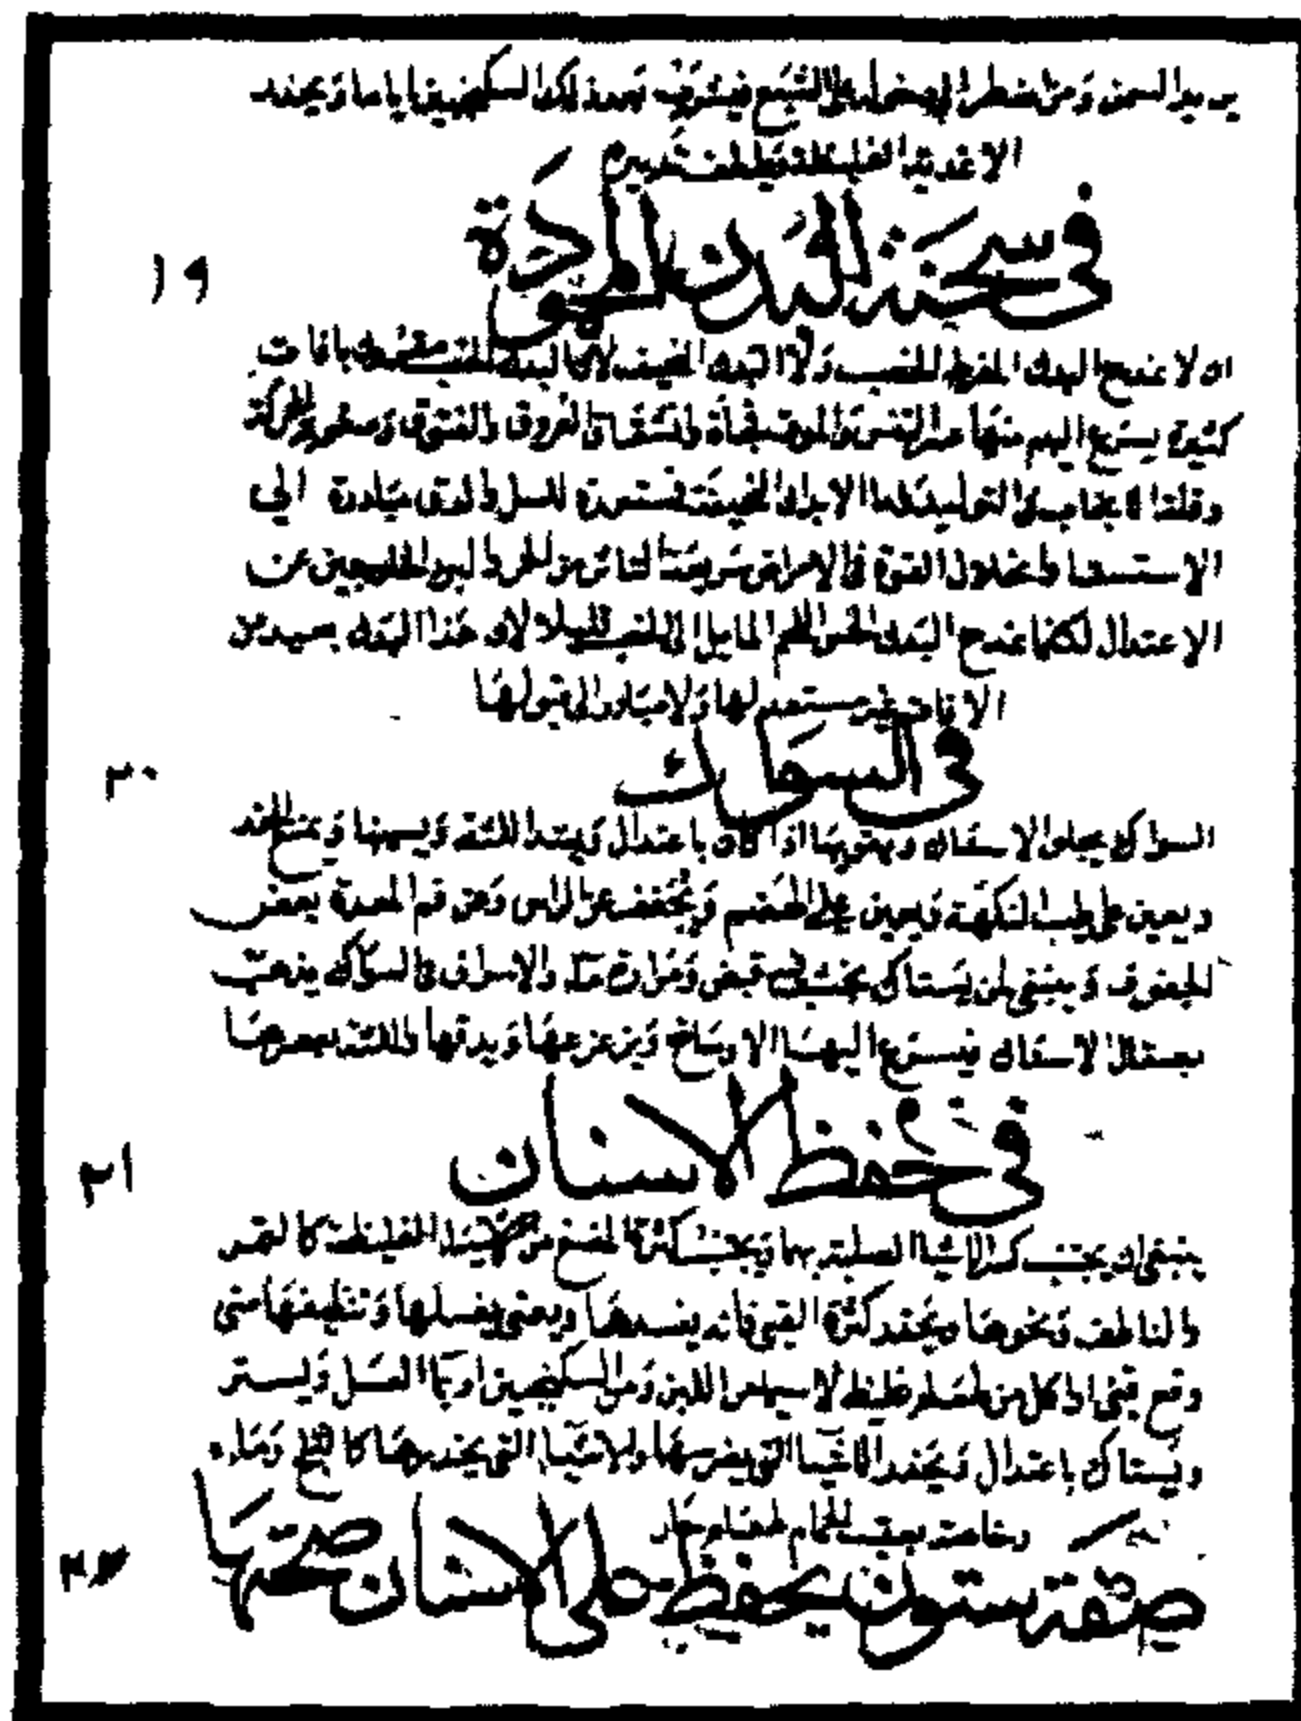 يريد السمن ومن اضطر الى دخوله على الشبع فيشرب بعد ذلك السكنجبين اياما ويحذر
الاغذية الغليظة ويلطف تدبيره
في سحنة البدن المحمودة
١٩
ان لا نمدح البدن المفرط الخصب ولا البدن النحيف لان البدن الخصب بافات
كثيرة يسرع اليهم منها عسر التنفس والموت فجأة وانشقاق العروق والفتوق الحركة
وقلة التوليد واما الابدان النحيفة فمستعدة للسل والدق مبادرة الى
الاستسقا وانحلال القوة في الامراض سريعة التاثر من الحر والبرد الخارجين عن
الاعتدال لكننا نمدح البدن الحسن اللحم المايل الى الخصب قليلا لان هذا البدن بعيد من
الافات غير مستعد لها ولا مبادر الى قبولها
في السواك
٢٠
السواك يجلو الاسنان ويقويها اذا كان باعتدال ويشد اللثة ويمنع الحفر
ويعين على طيب النكهة ويعين على الهضم ويخفف عن الراس وعن فم المعدة بعض
وينبغي لمن يستاك بخشب فيه قبض ومرارة ما والاسراف في السواك يذهب
بصقال الاسنان فيسرع اليها الاوساخ ويزعزعها ويدقها واللثة
في حفظ الاسنان
٢١
ينبغي ان يجتنب كسر الاشيا الصلبة بها ويجتنب كثرة المضغ من الغليظة كالتمر
والناطف ونحوها ويحذر كثرة القيء فانه يفسدها ويعتني بغسلها وتنظيفها متى
وقع قيء او اكل من طعام غليظ لاسيما اللبن ومن السكنجبين او بما العسل
ويستاك باعتدال ويحذر الاشيا التي يضرسها والاشيا التي يخدرها كالثلج وماء
وخاصة بعقب الحمام طعام حار
صفة سنون يحفظ على الاسنان صحتها